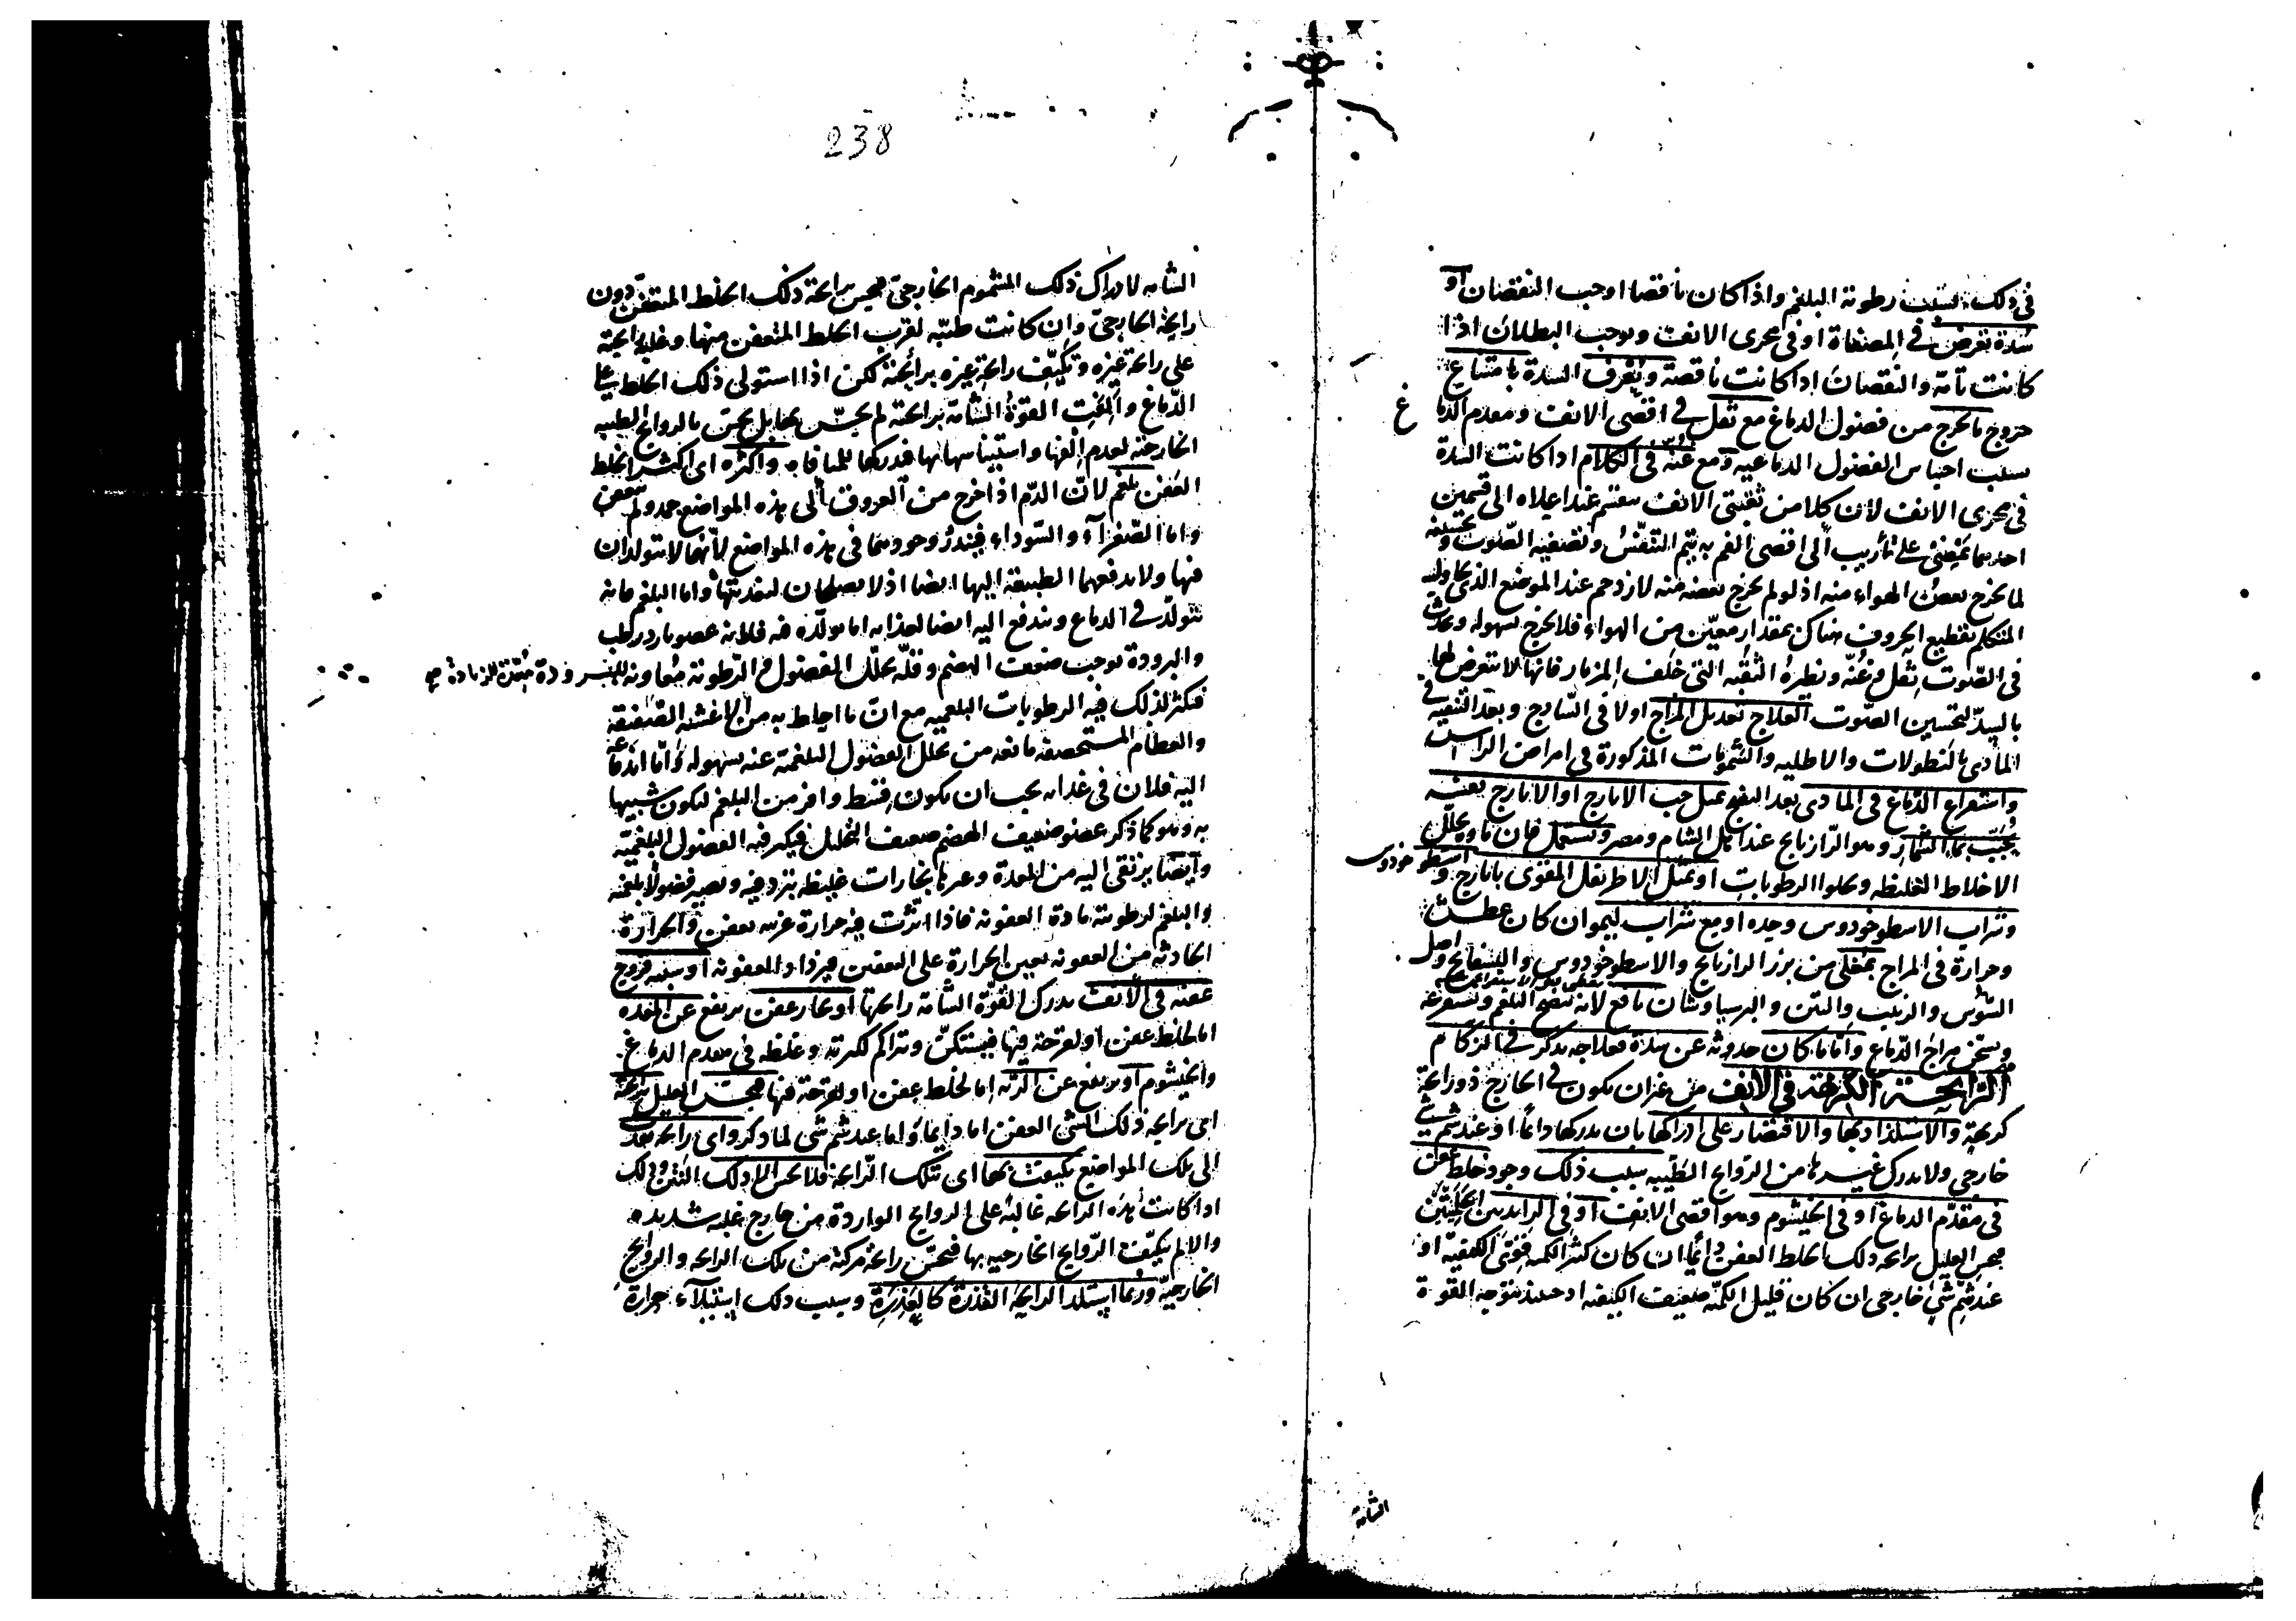 في ذلك السبب رطوبة البلغم واذا كان ناقصا اوجب النقصان او
سدة تعرض في المصفاة او في مجرى الانف وتوجب البطلان اذا
كانت تامة والنقصان اذا كانت ناقصة وتعرف السدة بامتناع
خروج ما يخرج من فضول الدماغ مع ثقل في اقصى الانف ومقدم الدما
غ
بسبب احتباس الفضول الدماغية ومع غنة في الكلام اذا كانت السدة
في مجرى الانف لان كلا من ثقبتي الانف ينقسم عند اعلاه الى قسمين
احدهما يمضي على تأريب الى اقصى الفم به يتم التنفس وتصفية الصوت وتحسينه
لما يخرج بعض الهواء منه اذ لو لم يخرج بعضه منه لازدحم عند الموضع الذي يحاول
المتكلم تقطيع الحروف هناك بمقدار معين من الهواء فلا يخرج بسهولة ويحدث
في الصوت ثقل وغنة ونظيره الثقبة التي خلف المزمار فانها لا يتعرض لها
بالسد لتحسين الصوت العلاج تعديل المزاج اولا في الساذج وبعد التنقية في
المادي بالنطولات والاطلية والشمومات المذكورة في امراض الراس
واستفراغ الدماغ في المادي بعد النضج بمثل حب الايارج او الايارج نفسه
يحبب بماء الشمار وهو الرازيانج عند اهل الشام ومصر ويستعمل فان ماءه يحلل
الاخلاط الغليظة ويجلو الرطوبات او بمثل الاطريفل المقوى بايارج و اسطوخودوس
وشراب الاسطوخودوس وحده او مع شراب ليمو ان كان عطش
وحرارة في المزاج بمغلى من بزر الرازيانج والاسطوخودوس والبسفايج واصل
السوس والزبيب والتين والبرسياوشان نافع لانه ينضج البلغم ويستفرغه
ويسخن مزاج الدماغ واما ما كان حدوثه عن سدة فعلاجه يذكر في الزكام
الرايحة الكريهة في الانف من غير ان يكون في الخارج ذو رايحة
كريهة والاستلذاذ بها والاقتصار على ادراكها بان يدركها دائما او عند شم شئ
خارجي ولا يدرك غيرها من الروايح الطيبة سبب ذلك وجود خلط عفن
في مقدم الدماغ او في الخيشوم وهو اقصى الانف او في الزايدتين الحلمتين
فيحس العليل برايحة ذلك الخلط العفن دائما ان كان كثير الكمية قوي الكيفية او
عند شم شئ خارجي ان كان قليل الكمية ضعيف الكيفية اذ حينئذ تتوجه القوة
الشامة
238
الشامة لادراك ذلك المشموم الخارجي فيحس برايحة ذلك الخلط المتعفن دون
رايحة الخارجي وان كانت طيبة لقرب الخلط المتعفن منها وغلبة رايحته
على رايحة غيره وتكيف رايحة غيره برايحته لكن اذا استولى ذلك الخلط على
الدماغ والفت القوة الشامة برايحته لم يحس بها بل يحس بالروايح الطيبة
الخارجية لعدم الفها واستيناسها بها فتدركها للمنافاة واكثره اى اكثر الخلط
العفن بلغم لان الدم اذا خرج من العروق الى هذه المواضع جمد ولم يتعفن
واما الصفراء والسوداء فيندر وجودهما في هذه المواضع لانهما لا يتولدان
فيها ولا يدفعهما الطبيعة اليها ايضا اذ لا يصلحان لتغذيتها واما البلغم فانه
يتولد في الدماغ ويندفع اليه ايضا لغذائه اما تولده فيه فلانه عضو بارد رطب
والبرودة توجب ضعف الهضم وقلة تحلل الفضول والرطوبة معاونة للبرودة
فيكثر لذلك فيه الرطوبات البلغمية مع ان ما احاط به من الاغشية الصفيقة
والعظام المستحصفة مانعة من تحلل الفضول البلغمية عنه بسهولة واما اندفاعه
اليه فلان في غذائه يجب ان يكون قسط وافر من البلغم ليكون شبيها
به وهو كما ذكر عضو ضعيف الهضم ضعيف التحليل فيكثر فيه الفضول البلغمية
وايضا يرتقي اليه من المعدة وغيرها بخارات غليظة تبرد فيه وتصير فضولا بلغمية
والبلغم لرطوبته مادة العفونة فاذا اثرت فيه حرارة غريبة يعفن والحرارة
الحادثة من العفونة تعين الحرارة على التعفين فيزداد العفونة او سببه قروح
عفنة في الانف يدرك القوة الشامة رايحتها او بخار عفن يرتفع عن المعدة
اما لخلط عفن او لقرحة فيها فيستكن ويتراكم لكثرته وغلظه في مقدم الدماغ
والخيشوم او يرتفع عن الرئة اما لخلط عفن او لقرحة فيها فيحس العليل برايحته
اى برايحة ذلك الشئ العفن اما دايما واما عند شم شئ لما ذكر واى رايحة تصل
الى تلك المواضع تكيفت بها اى بتلك الرايحة فلا يحس الا ذلك النتن وذلك
اذا كانت هذه الرايحة غالبة على الروايح الواردة من خارج غلبة شديدة
والا لم يكيف الروايح الخارجية بها فيحس رايحة مركبة من تلك الرايحة والروايح
الخارجية وربما استلذ الرايحة القذرة كالعذرة وسبب ذلك استيلاء حرارة